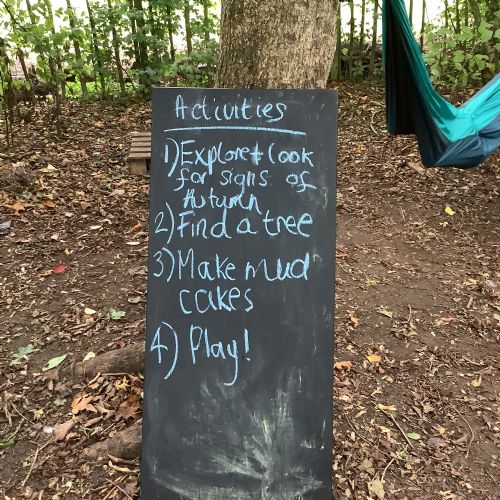 Activities
1) Explore + look
for signs of
Autumn
2) Find a tree
3) Make mud
cakes
4) Play!